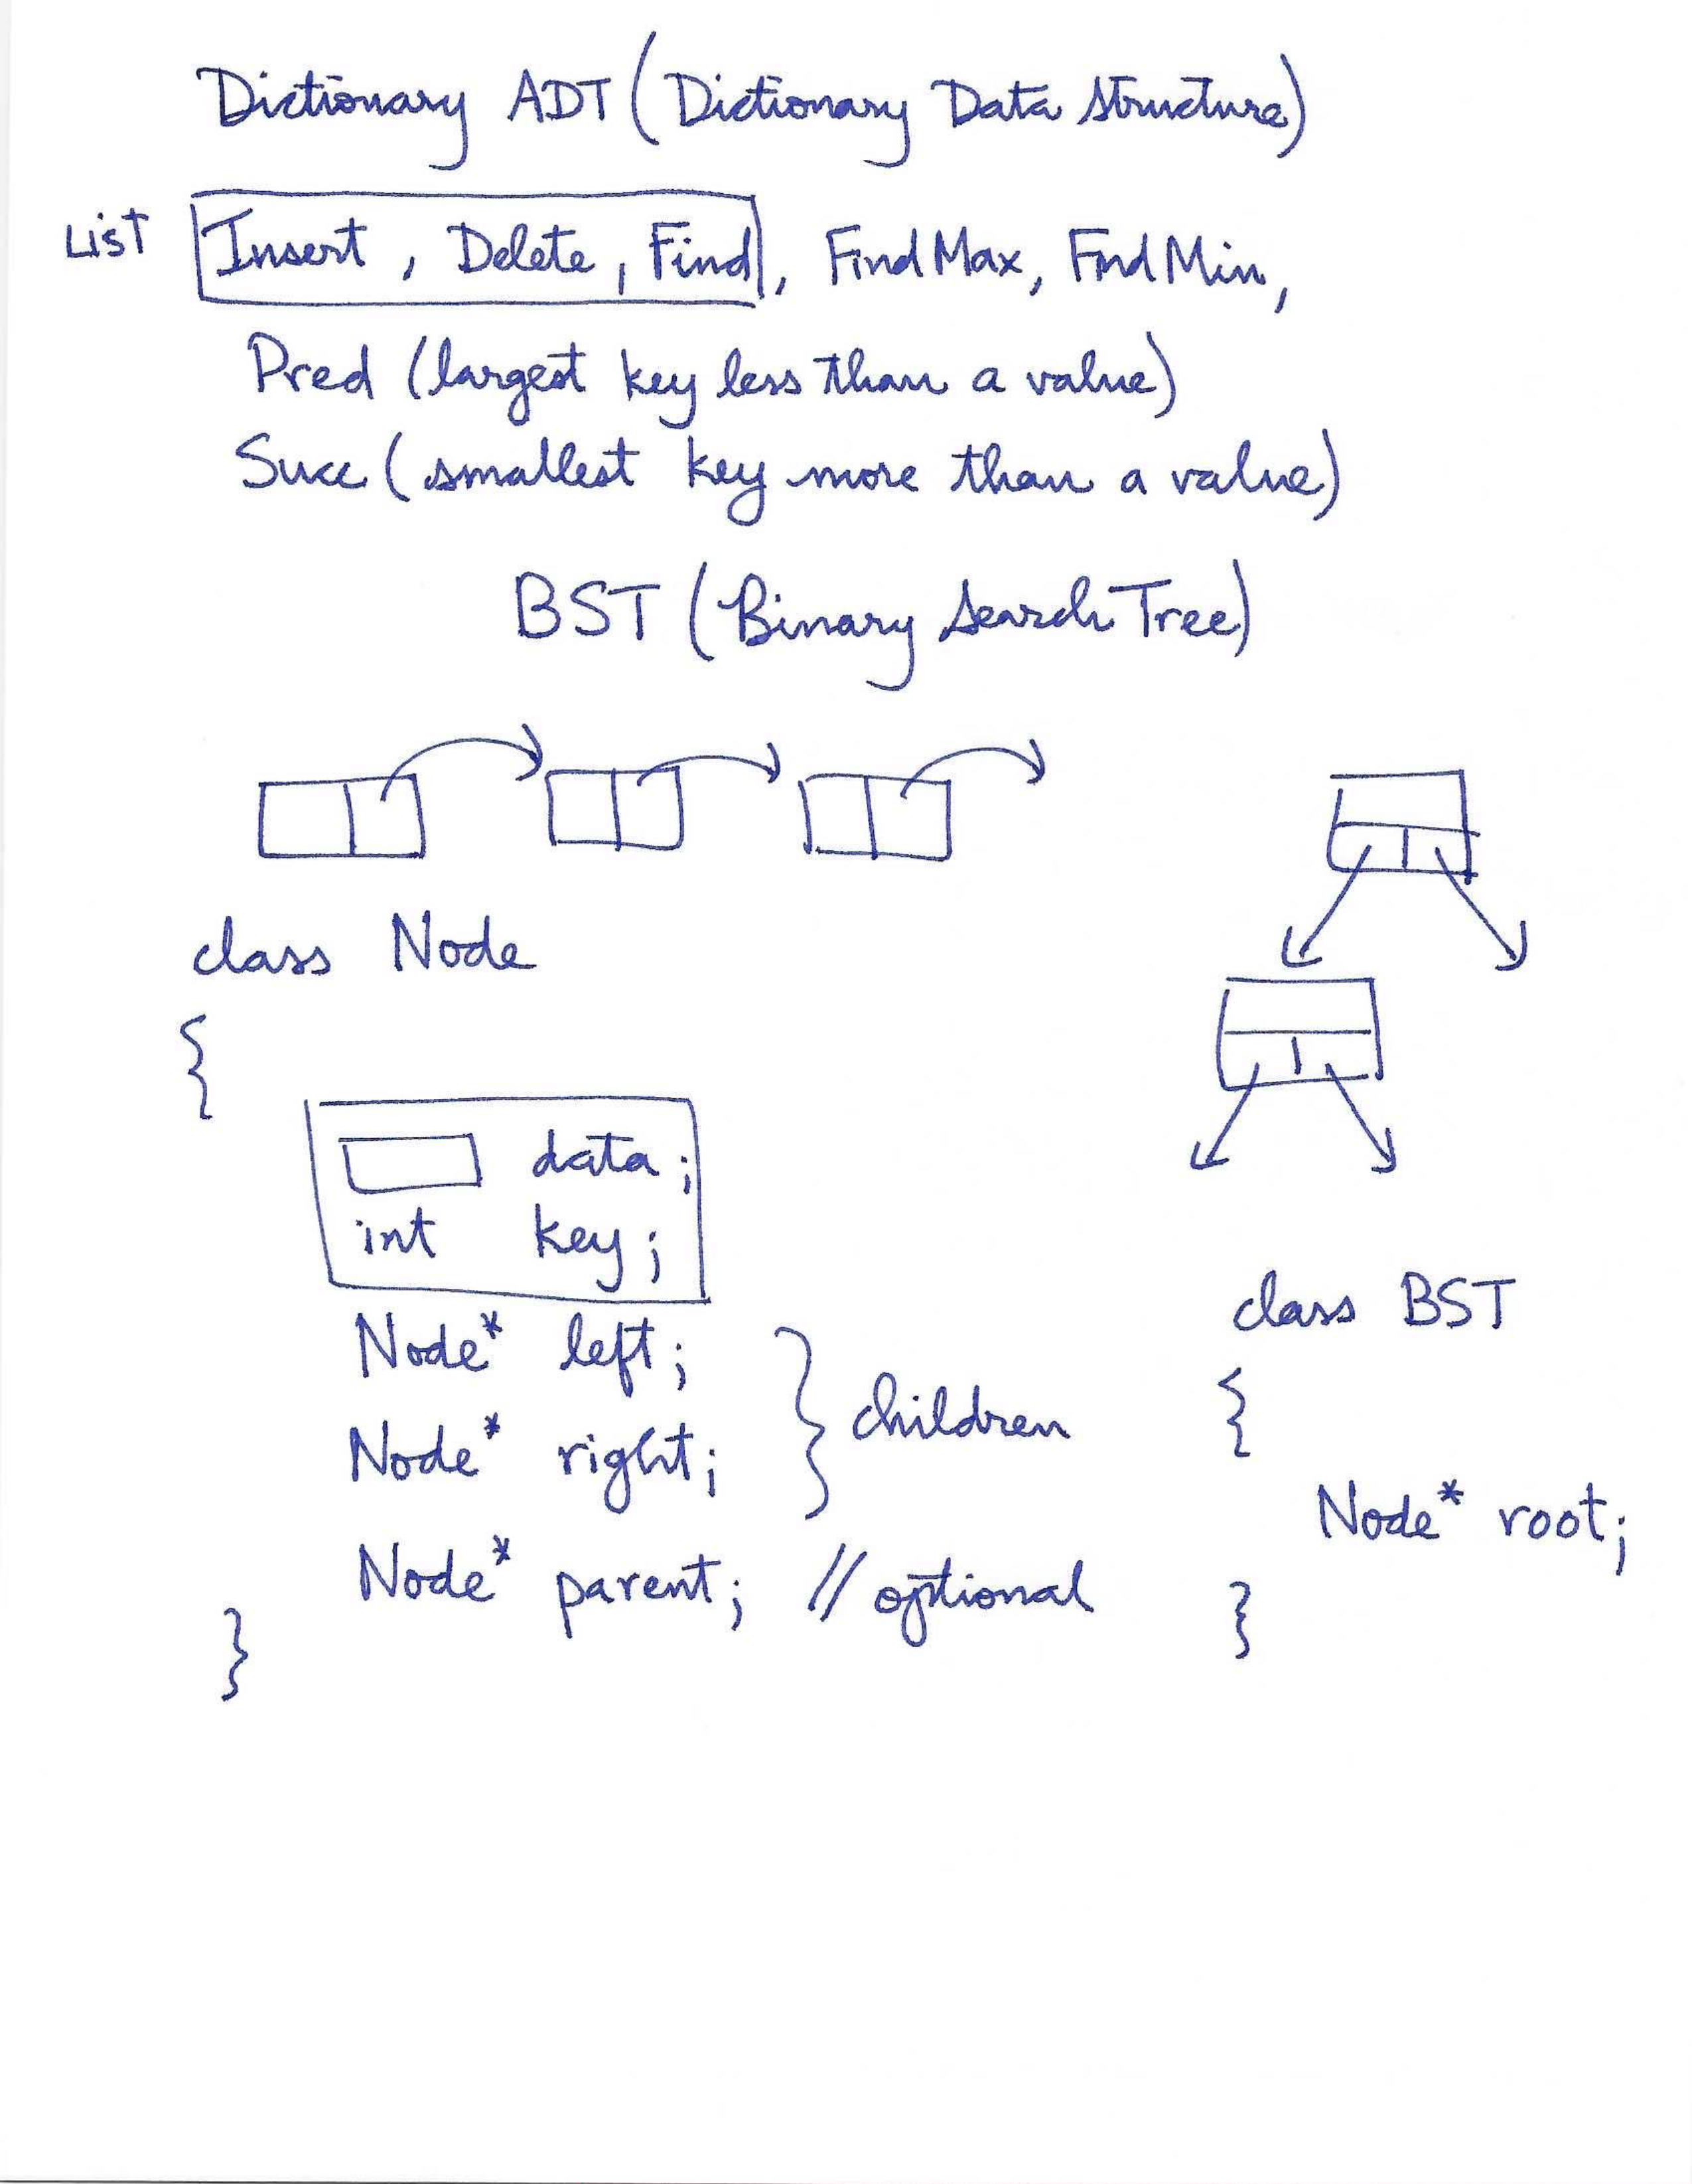 Dictionary ADT (Dictionary Data Structure)
LIST Insert, Delete, Find, FindMax, FindMin,
Pred (largest key less than a value)
Succ (smallest key more than a value)
BST (Binary Search Tree)
class Node
{
data;
int key;
Node* left;
Node* right;
children
Node* parent; // optional
}
class BST
{
Node* root;
}